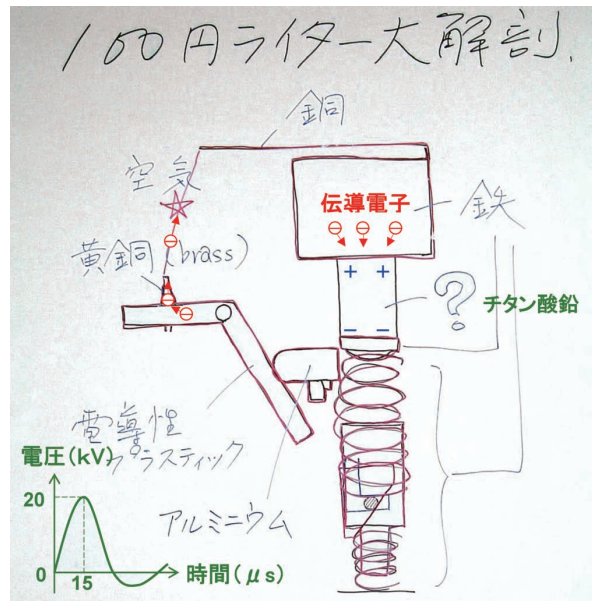 100円ライター大解剖.
銅
空気
伝導電子
鉄
⊖ ⊖ ⊖
⊖
黄銅(brass)
+ +
?
チタン酸鉛
⊖
⊖
− −
電導性
プラスティック
電圧(kV)
アルミニウム
20
0
15
時間(μs)